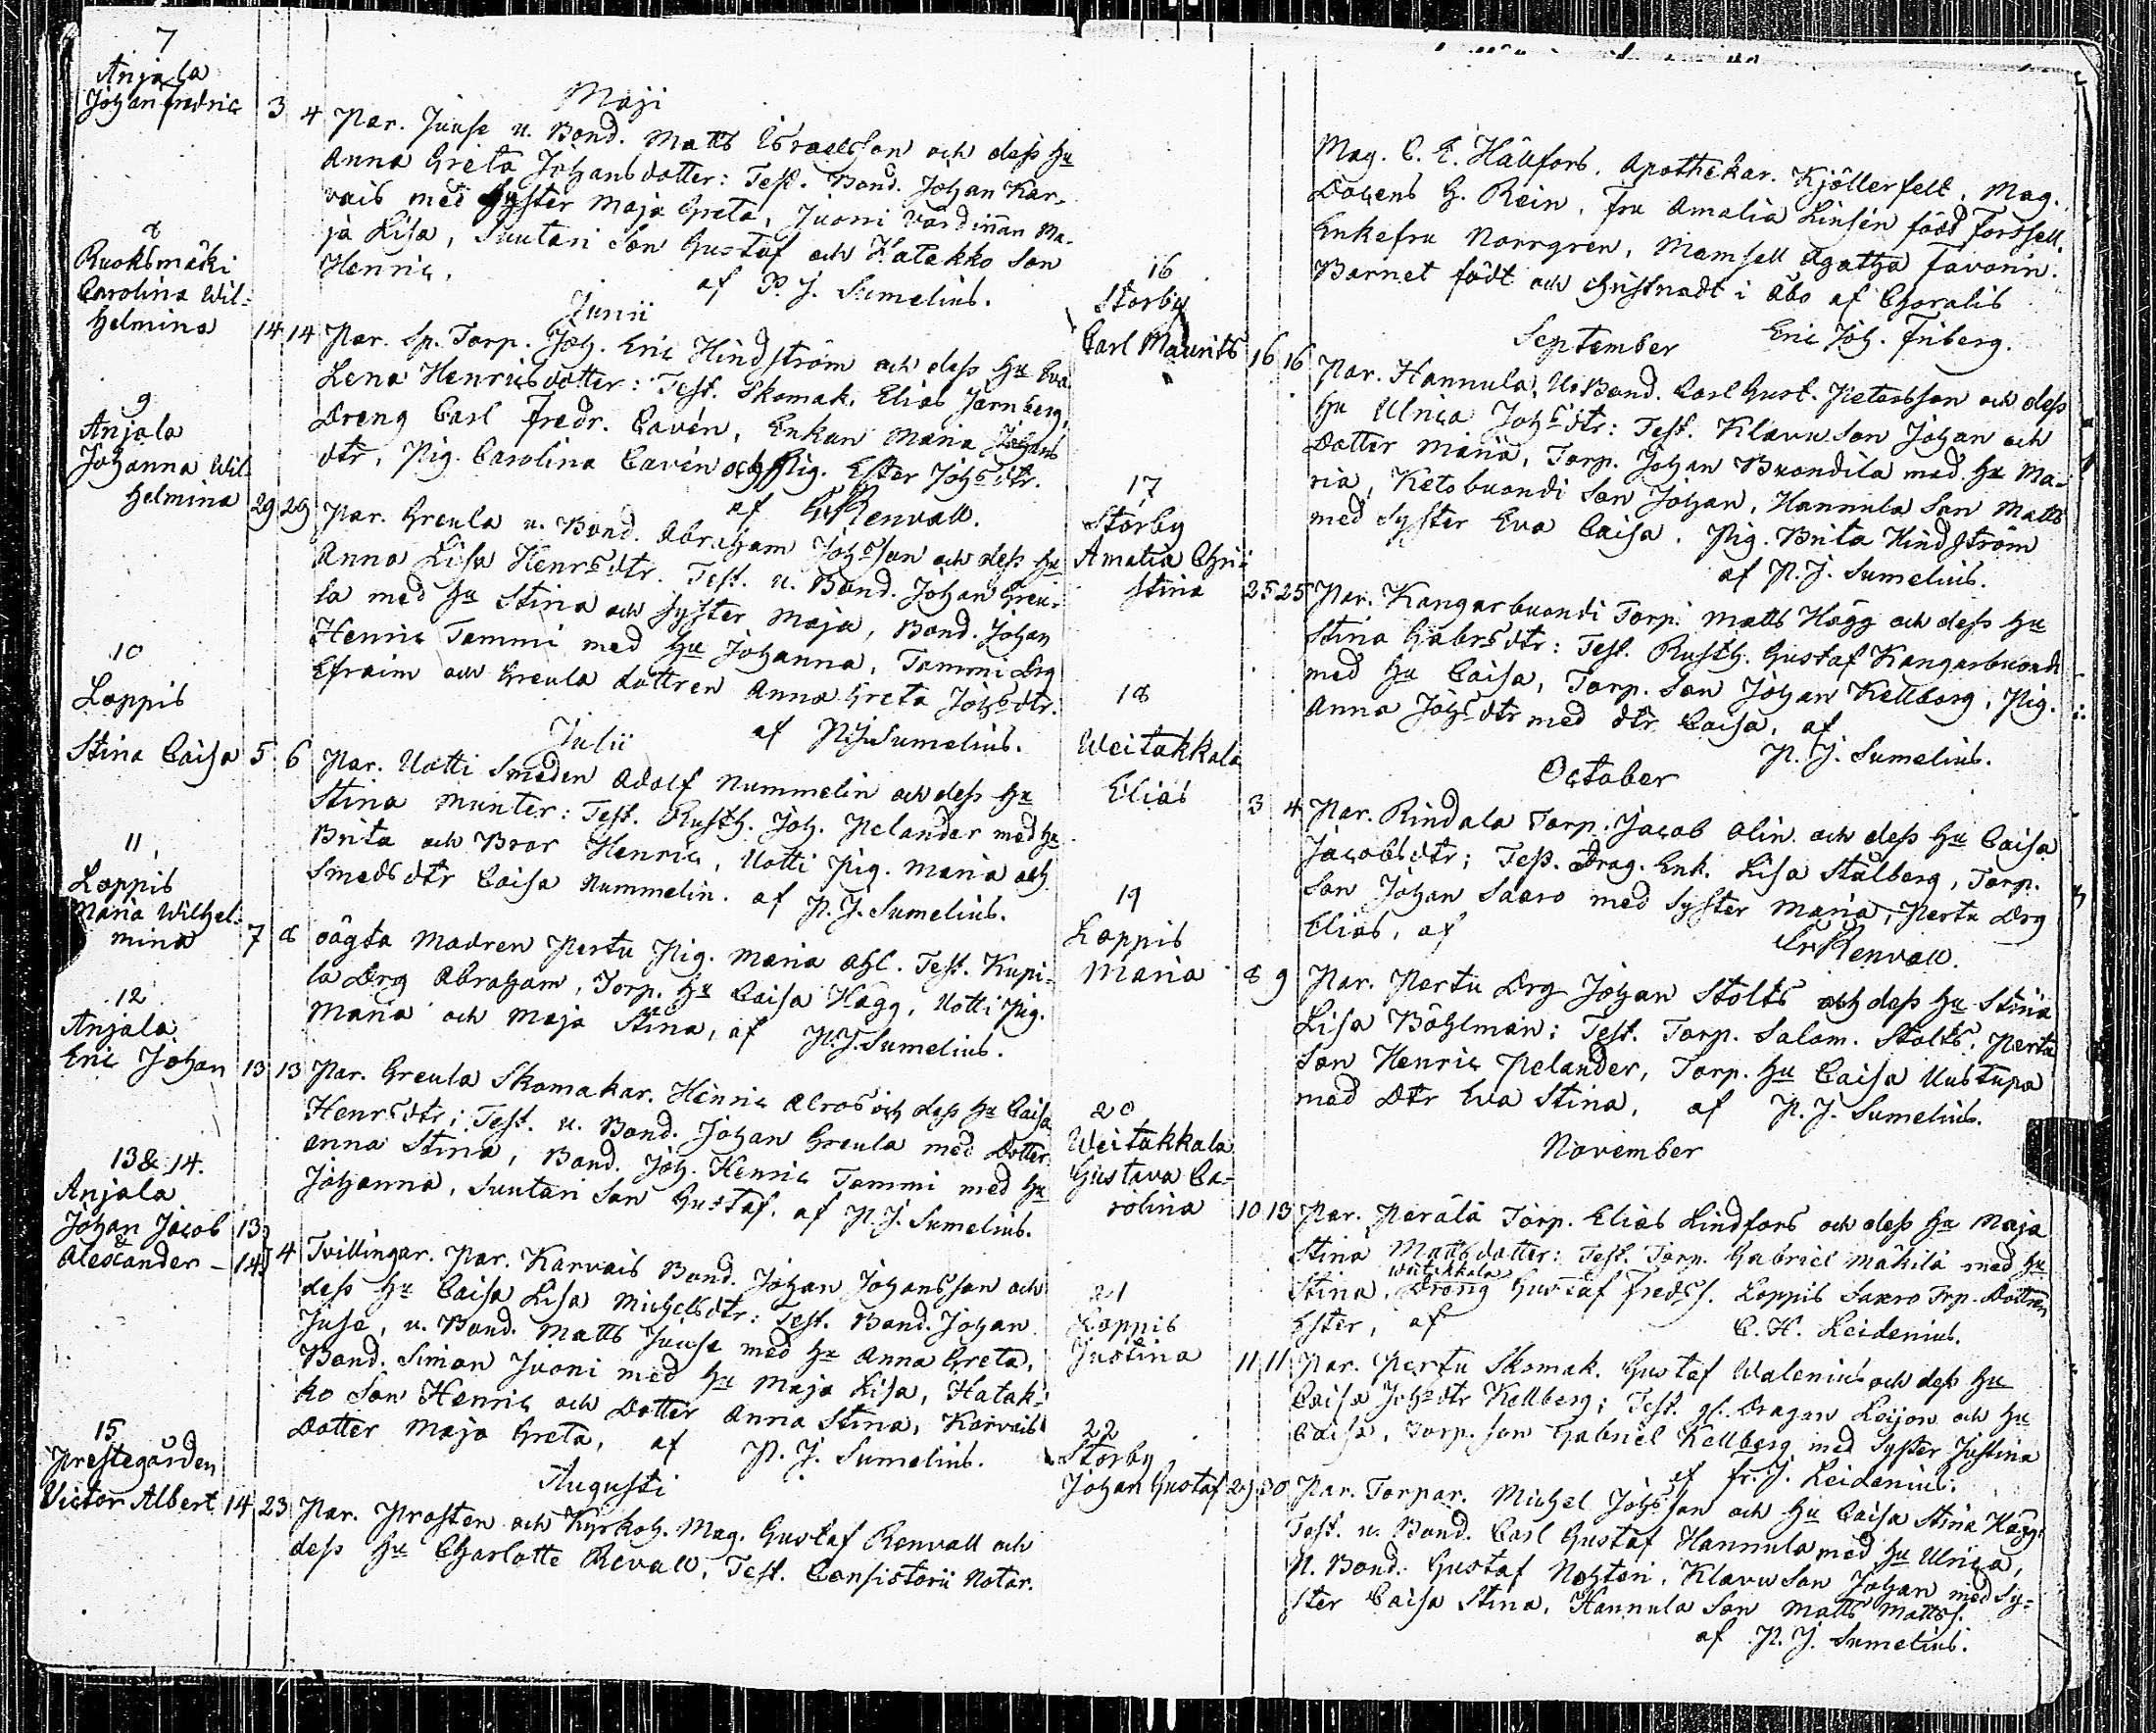 7
Anjala
Johan Fredric 3 4
Maji
Par. Juuse u. Bond. Matts Israelsson och dess Hu
Anna Greta Johansdotter: Test. Bond. Johan Kar-
vais med Syster Maja Greta, Juoni Värdinnan Ma-
ja Lisa, Suutari Son Gustaf och Hatakko Son
Henric, af P. J. Sumelius.
Junii
8
Ruoksmäki
Carolina Wil-
helmina 14 14
Par. Sp. Torp. Joh. Eric Hindström och dess Hu Eva
Lena Henricsdotter: Test. Skomak. Elias Järnberg,
Dreng Carl Fredr. Cavén, Enkan Maria Johans
dtr, Pig. Carolina Cavén och Pig. Ester Johs dtr.
af GRenvall.
9
Anjala
Johanna Wil-
helmina 29 29
Par. Greula u. Bond. Abraham Johsson och dess Hu
Anna Lisa Henrs dtr. Test. u. Bond. Johan Greu-
la med Hu Stina och Syster Maja, Bond. Johan
Henric Tammi med Hu Johanna, Tammi Drg
Efraim och Greula dottren Anna Greta Johs dtr.
af P. J. Sumelius.
Julii
10
Loppis
Stina Caisa 5 6
Par. Uotti Smeden Adolf Nummelin och dess Hu
Stina Munter: Test. Rusth. Joh. Pelander med Hu
Brita och Bror Henric, Uotti Pig. Maria och
Smeds dtr Caisa Nummelin. af P. J. Sumelius.
11
Loppis
Maria Wilhel-
mina 7 8
oägta Modren Pertu Pig. Maria Ahl. Test. Kupi-
la Drg Abraham, Torp. Hu Caisa Hägg, Uotti Pig.
Maria och Maja Stina, af P. J. Sumelius.
12
Anjala
Eric Johan 13 13
Par. Greula Skomakar. Henric Alros och dess Hu Caisa
Henrs dtr; Test. u. Bond. Johan Greula med Dotter
Anna Stina, Bond. Joh. Henric Tammi med Hu
Johanna, Suutari Son Gustaf. af P. J. Sumelius.
13 & 14.
Anjala
Johan Jacob 13
&
Alexander - 14 4
Tvillingar. Par. Karvais Bond. Johan Johansson och
dess Hu Caisa Lisa Michelsdtr: Test. Bond. Johan
Juse, u. Bond. Matts Juuse med Hu Anna Greta,
Bond. Simon Juoni med Hu Maja Lisa, Hatak-
ko Son Henric och Dotter Anna Stina, Karvais
Dotter Maja Greta, af P. J. Sumelius.
Augusti
15
Prestegården
Victor Albert 14 23
Par. Prosten och Kyrkoh. Mag. Gustaf Renvall och
dess Hu Charlotte Revall, Test. Consistorii Notar.
Mag. C. E. Hällfors, Apothekar. Kjöllerfelt, Mag.
Docens G. Rein, Fru Amalia Linsén född Forssell,
Enkefru Norrgren, Mamsell Agatha Favorin.
Barnet födt och christnadt i Åbo af Choralis
Eric Joh. Friberg.
September
16
Storby
Carl Maurits 16 16
Par. Hannula, U. Bond. Carl Gust. Petersson och dess
Hu Ulrica Johs dtr: Test. Klavu Son Johan och
Dotter Maria, Torp. Johan Buondila med Hu Ma-
ria, Ketobuondi Son Johan, Hannula Son Matts
med Syster Eva Caisa, Pig. Brita Hindström
af P. J. Sumelius.
17
Storby
Amalia Chri-
stina 25 25
Par. Kangarbuondi Torp. Matts Hägg och dess Hu
Stina Gabrs dtr: Test. Rusth. Gustaf Kangarbuondi
med Hu Caisa, Torp. Son Johan Kellberg, Pig.
Anna Johs dtr med dtr Caisa, af
P. J. Sumelius.
October
18
Weitakkala
Elias 3 4
Par. Rindala Torp. Jacob Olin och dess Hu Caisa
Jacobsdtr; Test. Drag. Enk. Lisa Stålberg, Torp.
Son Johan Saaro med Syster Maria, Pertu Drg
Elias, af GRenvall.
19
Loppis
Maria 8 9
Par. Pertu Drg Johan Stolts och dess Hu Stina
Lisa Böhlman: Test. Torp. Salom. Stolts, Pertu
Son Henric Pelander, Torp. Hu Caisa Uustupa
med Dtr Eva Stina, af P. J. Sumelius.
November
20
Weitakkala
Gustava Ca-
rolina 10 13
Par. Perälä Torp. Elias Lindfors och dess Hu Maja
Stina Mattsdotter: Test. Torp. Gabriel Mäkilä med Hu
Weitakkala
Stina, Dräng Gustaf Fredss. Loppis Saaro Trp. Dottren
Ester, af C. H. Leidenius.
21
Loppis
Justina 11 11
Par. Pertu Skomak. Gustaf Walenius och dess Hu
Caisa Johs dtr Kellberg; Test. gl. Dragon Leijon och Hu
Caisa, Torp. Son Gabriel Kellberg med Syster Justina
af Fr. J. Leidenius.
22
Storby
Johan Gustaf 29 30
Par. Torpar. Michel Johsson och Hu Caisa Stina Hägg
Test. u. Bond. Carl Gustaf Hannula med Hu Ulrica,
N. Bond. Gustaf Nohteri, Klavu Son Johan med Sy-
ster Caisa Stina, Hannula Son Matts Mattss.
af P. J. Sumelius.